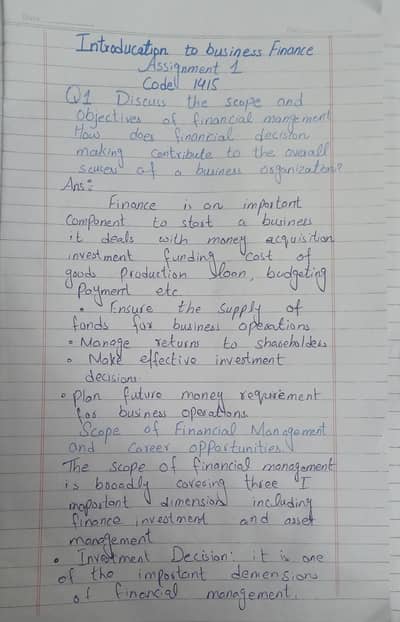 Introducation to business Finance
Assignment 1
Code 1415
Q1 Discuss the scope and
objectives of financial mangement
How does financial decision
making contribute to the overall
succes of a business organization?
Ans:
Finance is an important
Component to start a business
it deals with money acquisition
investment funding cost of
goods production loan, budgeting
Payment etc
• Ensure the supply of
fonds for business operations
• Manage returns to shareholders
• Make effective investment
decisions
• Plan future money requirement
for business operations.
Scope of Financial Management
and Career opportunities
The scope of financial management
is booadly covering three I
mapostant dimension including
finance investment and asset
management
• Investment Decision: it is one
of the important demensions
of financial management.